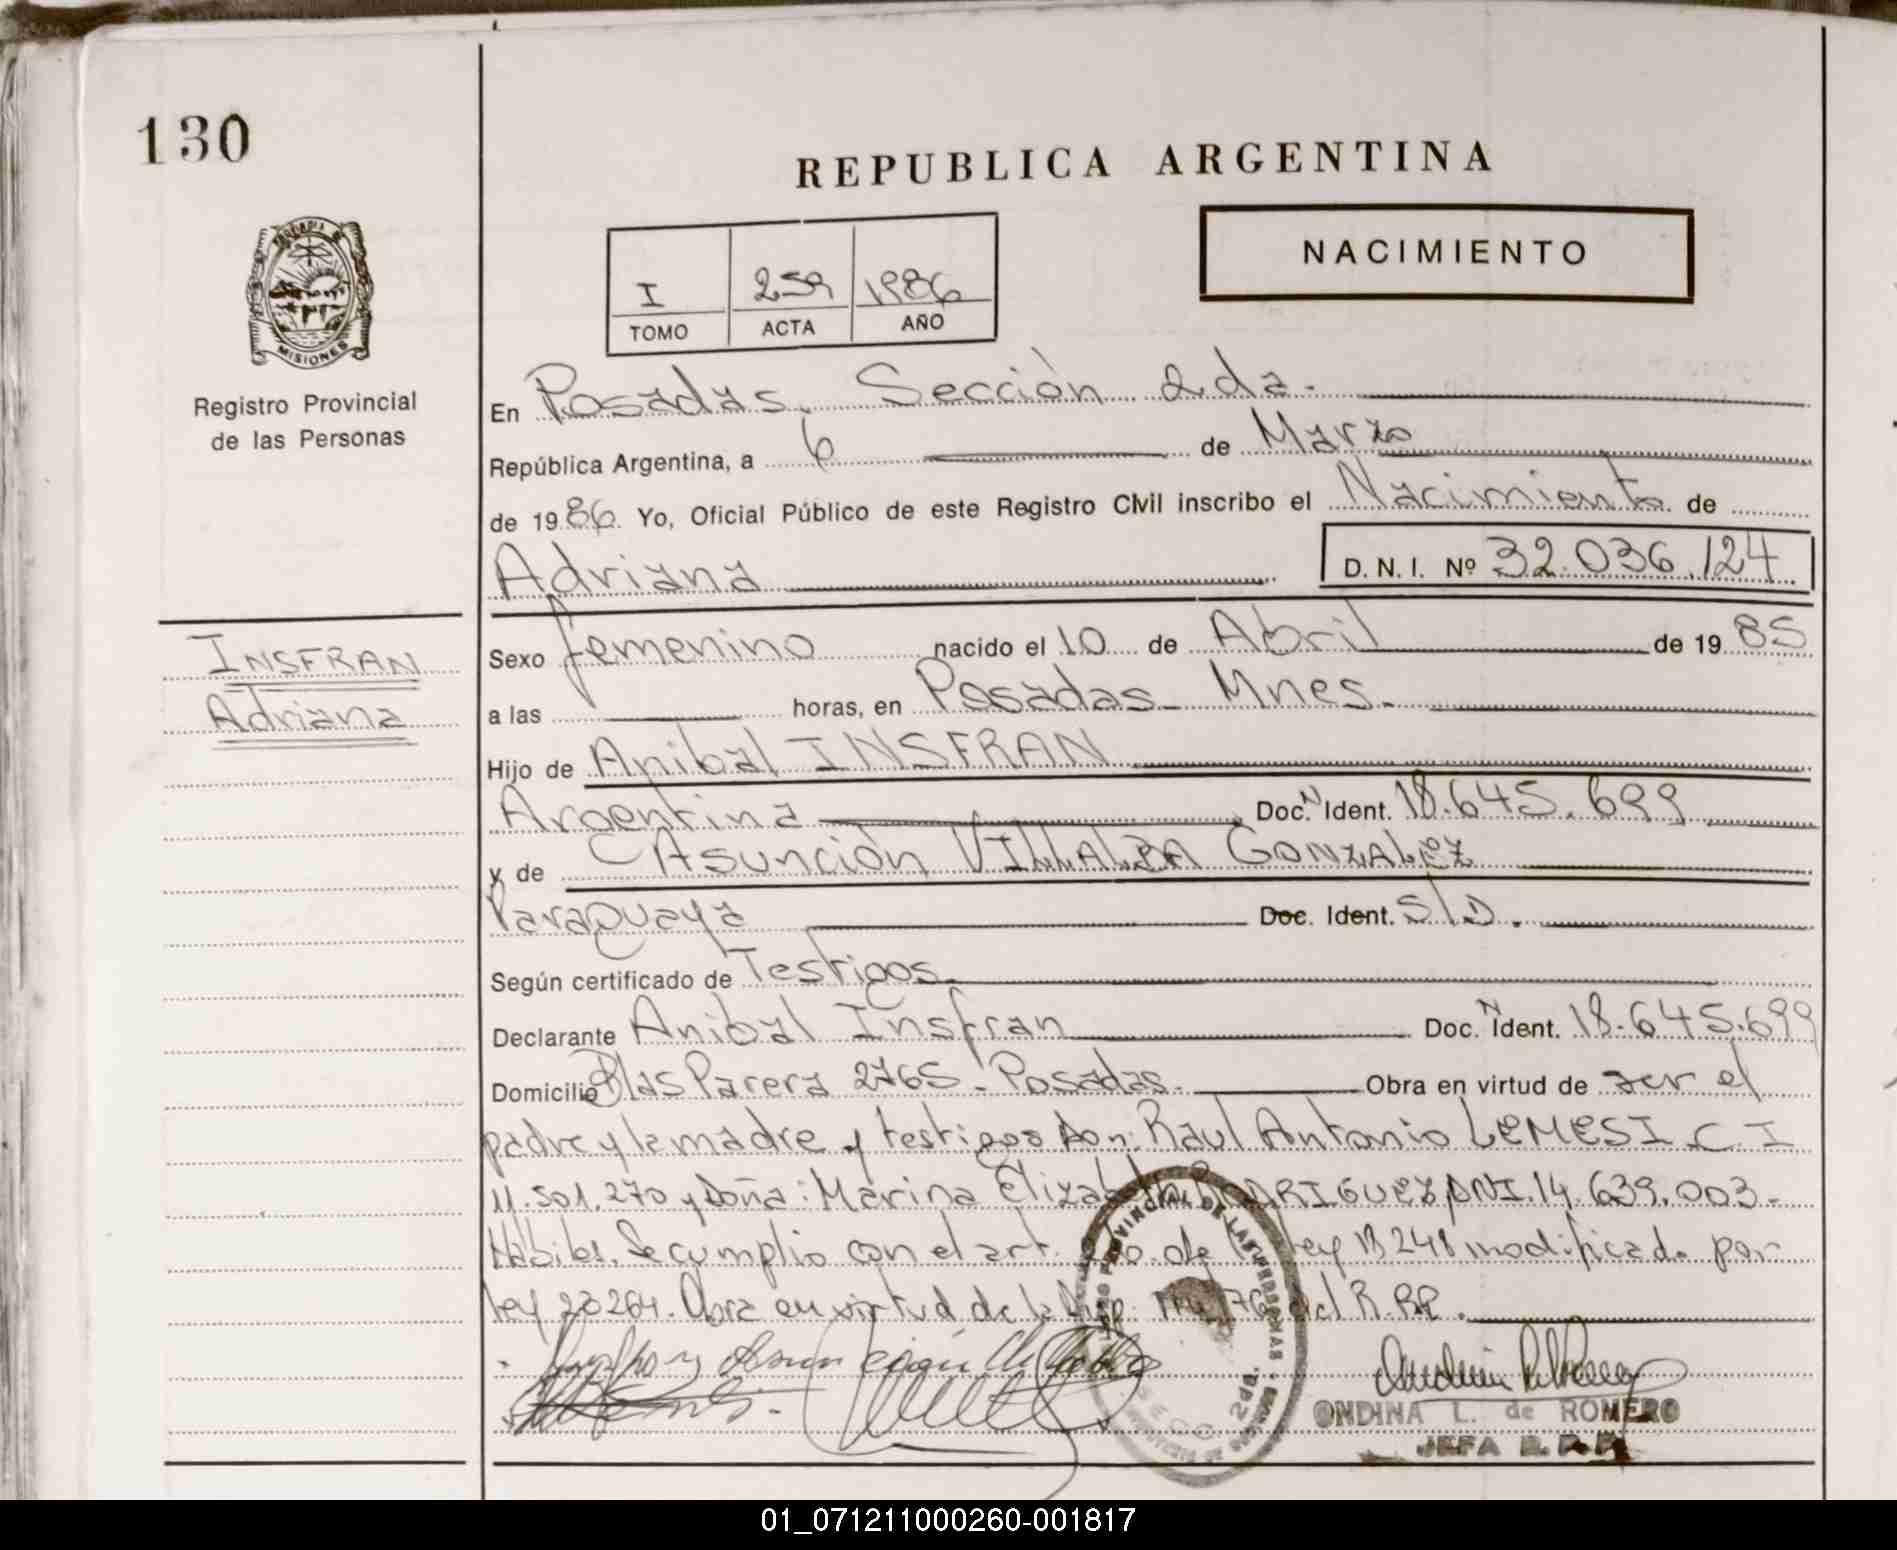 130
REPUBLICA ARGENTINA
NACIMIENTO
I 259 1986
TOMO ACTA AÑO
MISIONES
Registro Provincial
de las Personas
En Posadas. Sección 2da.
República Argentina, a 6 de Marzo
de 1986. Yo, Oficial Público de este Registro Civil inscribo el Nacimiento de
Adriana D. N. I. Nº 32.036.124
INSFRAN
Adriana
Sexo femenino nacido el 10 de Abril de 1985
a las horas, en Posadas - Mnes.
Hijo de Anibal INSFRAN
Argentina Doc. N Ident. 18.645.699
y de Asunción VILLALBA GONZALEZ
Paraguaya Doc. Ident. S/D.
Según certificado de Testigos.
Declarante Anibal Insfran Doc. N Ident. 18.645.699
Domicilio Blas Parera 2765 - Posadas. Obra en virtud de ser el
padre y la madre y testigos Don: Raul Antonio LEMESI C I
11.501.270 y Doña: Marina Elizabeth DNI. 14.639.003.-
Habiles. Se cumplio con el art. de ley 18248 modificado por
ley 23264. Obra en virtud de la Disp. 76 del R.PP.
REGISTRO PROVINCIAL DE LAS PERSONAS
SECC 2da.
ONDINA L. de ROMERO
JEFA R. P. P.
01_071211000260-001817